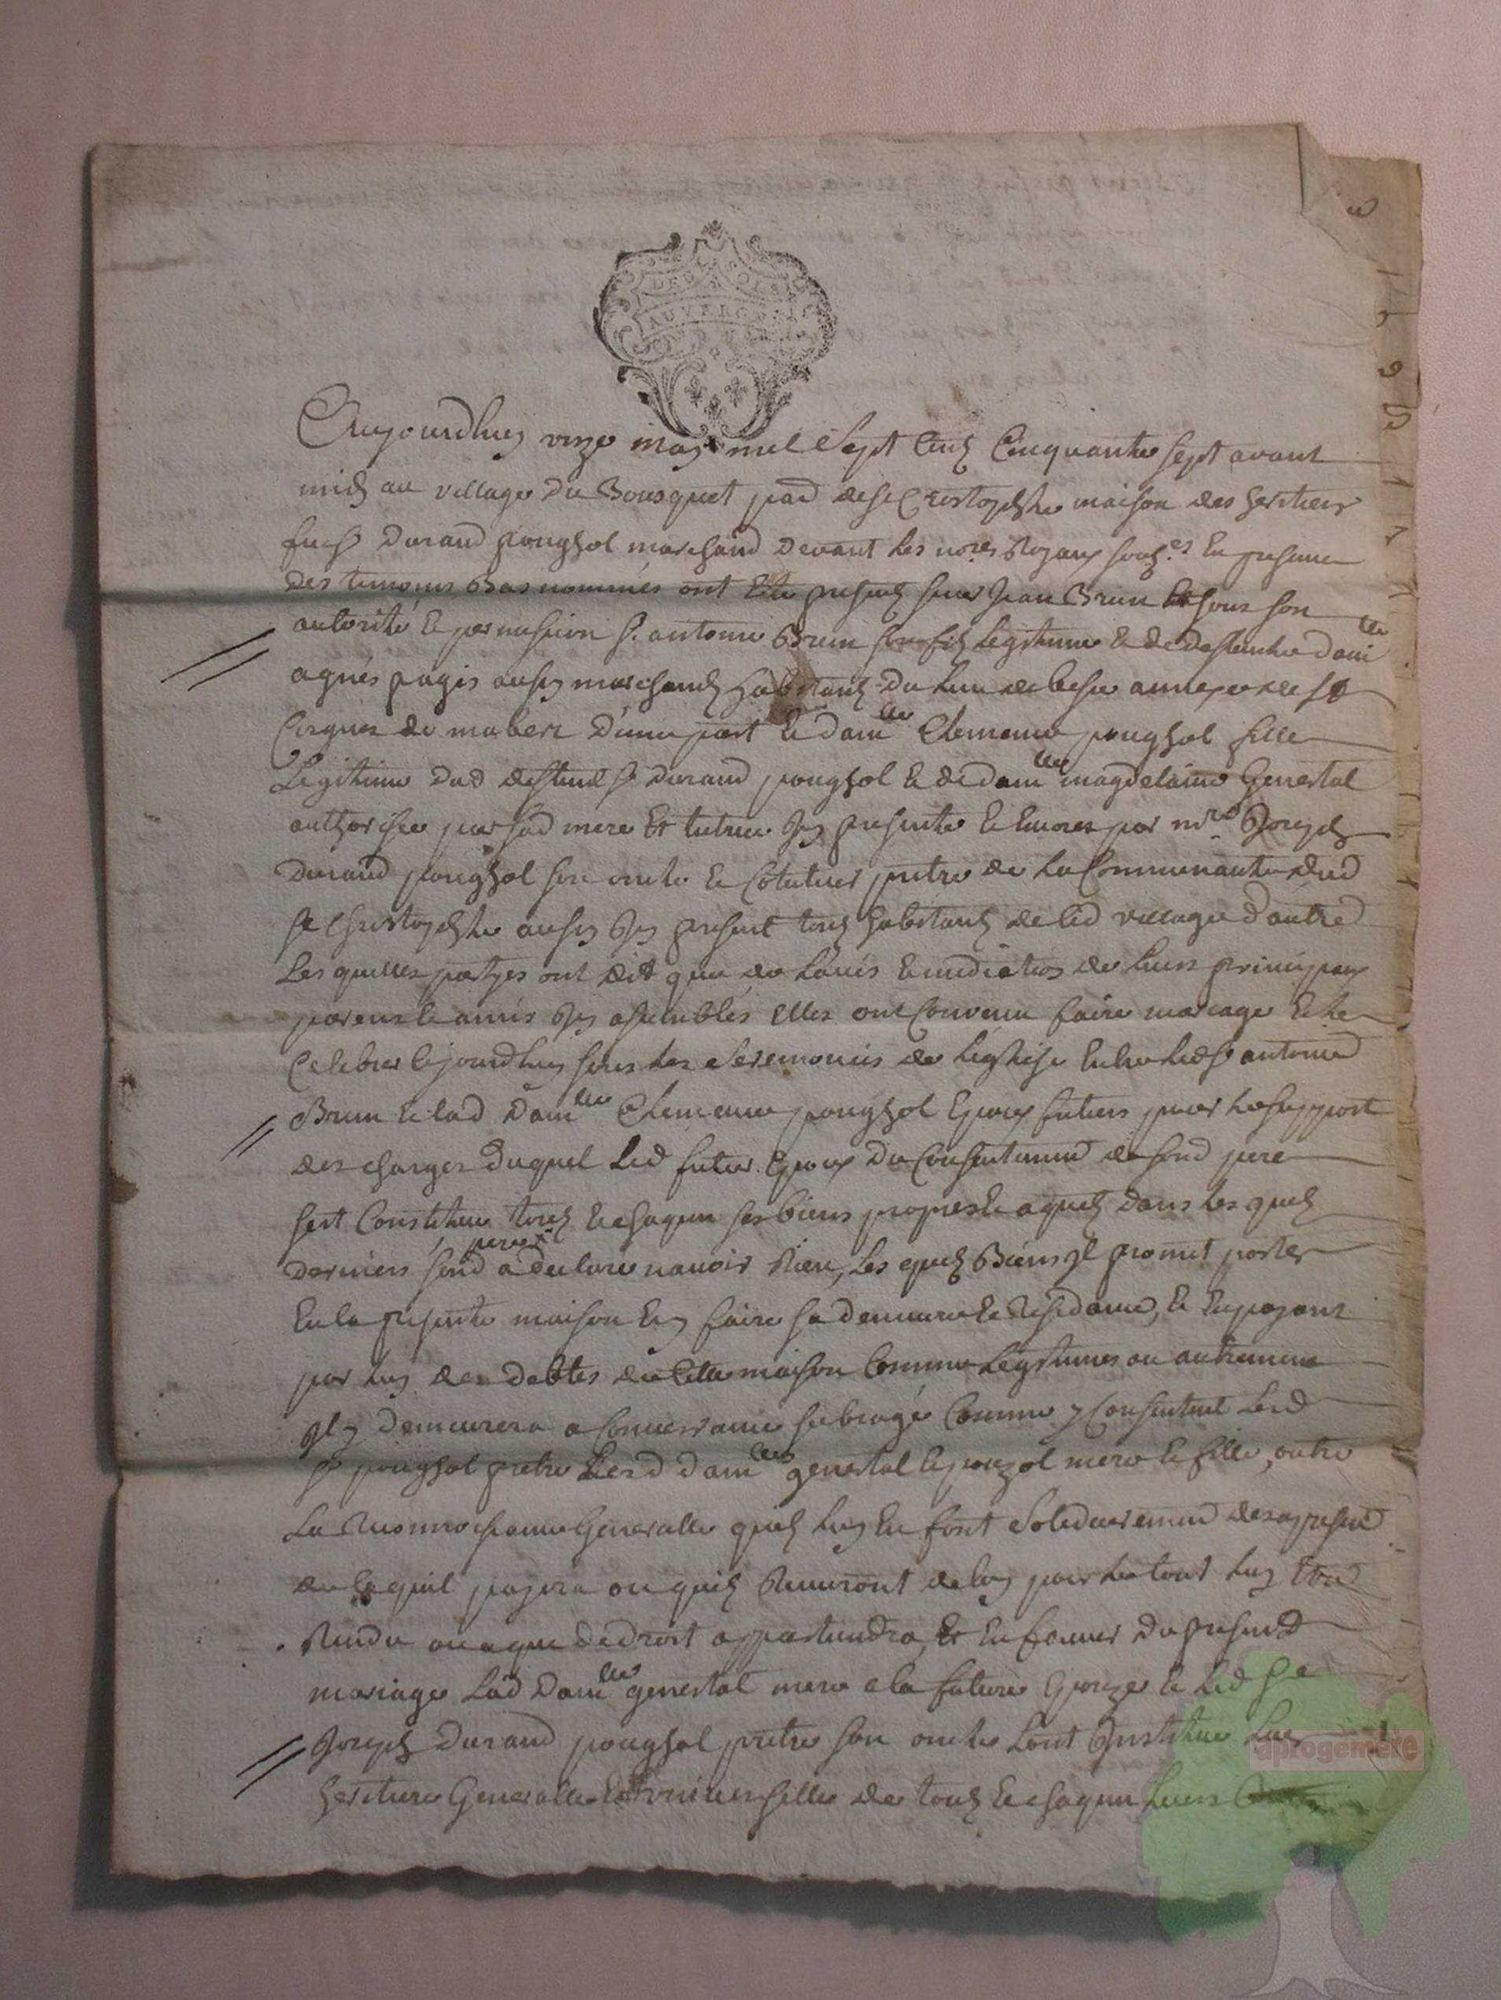 DEUX SOLS
AUVERGNE
Aujourdhuy onze may mil Sept Cens Cinquante sept avant
midy au village du Bousquet parr de St Cristophe maison des heritiers
feu Sr Durand poughol marchand devant les nores Royaux soussignés En presence
des temoins Bas nommés ont Eté presens sieur Jean Brun Et sous son
autorité Et permission Sr antoine Brun son fils legitime Et de defunte damlle
agnés pagis aussy marchands habitants du lieu de besse annexe de St
Cirgues de malbert D'une part Et damlle Clemence poughol fille
Legitime dud deffunt Sr Durand poughol Et de damlle magdelaine Genertal
authorisée par sad mere Et tutrice Jcy presente Et Encore par mre Joseph
Durand poughol son oncle Et Cotuteur pretre de la Communauté dud
St Christophe aussy Jcy present tous habitants de led village d'autre
Les quelles partyes ont dit que de l'avis Et mediation de leurs principaux
parens Et amis Jcy assemblés Elles ont Convenu faire mariage Et le
Celebrer Cejourdhuy sous les Seremonies de l'eglise Entre led Sr antoine
Brun Et lad Damlle Clemence poughol Epoux futurs pour le support
des charges duquel Led futur Epoux du Consentement de sond pere
sest Constitué tous Et chaqun ses biens propres Et aquets dans les quels
derniers sond pere a declaré n'avoir Rien, Les quels Biens Jl promet porter
En la presente maison Et y faire sa demeure Et Residance, Et En payant
par luy des debtes de Cette maison Comme Legitimes ou autrement
Jl y demeurera a Concurrance subrogé Comme y Consentent Led
Sr poughol pretre Lesd damlles genertal Et pouzol mere Et fille, outre
La Reconnoissance Generalle quils luy En font Solidairement des a present
de Ce quil payera ou quils Recevront de luy pour le tout luy Etre
Rendu ou a que de droit appartiendra, Et En faveur du present
mariage Lad Damlle genertal mere a la future Epouze Et Led Sr
Joseph Durand poughol pretre son oncle L'ont Jnstitué Leur
heritiere Generalle Et universelle de tous Et chaqun Leurs
aprogemere